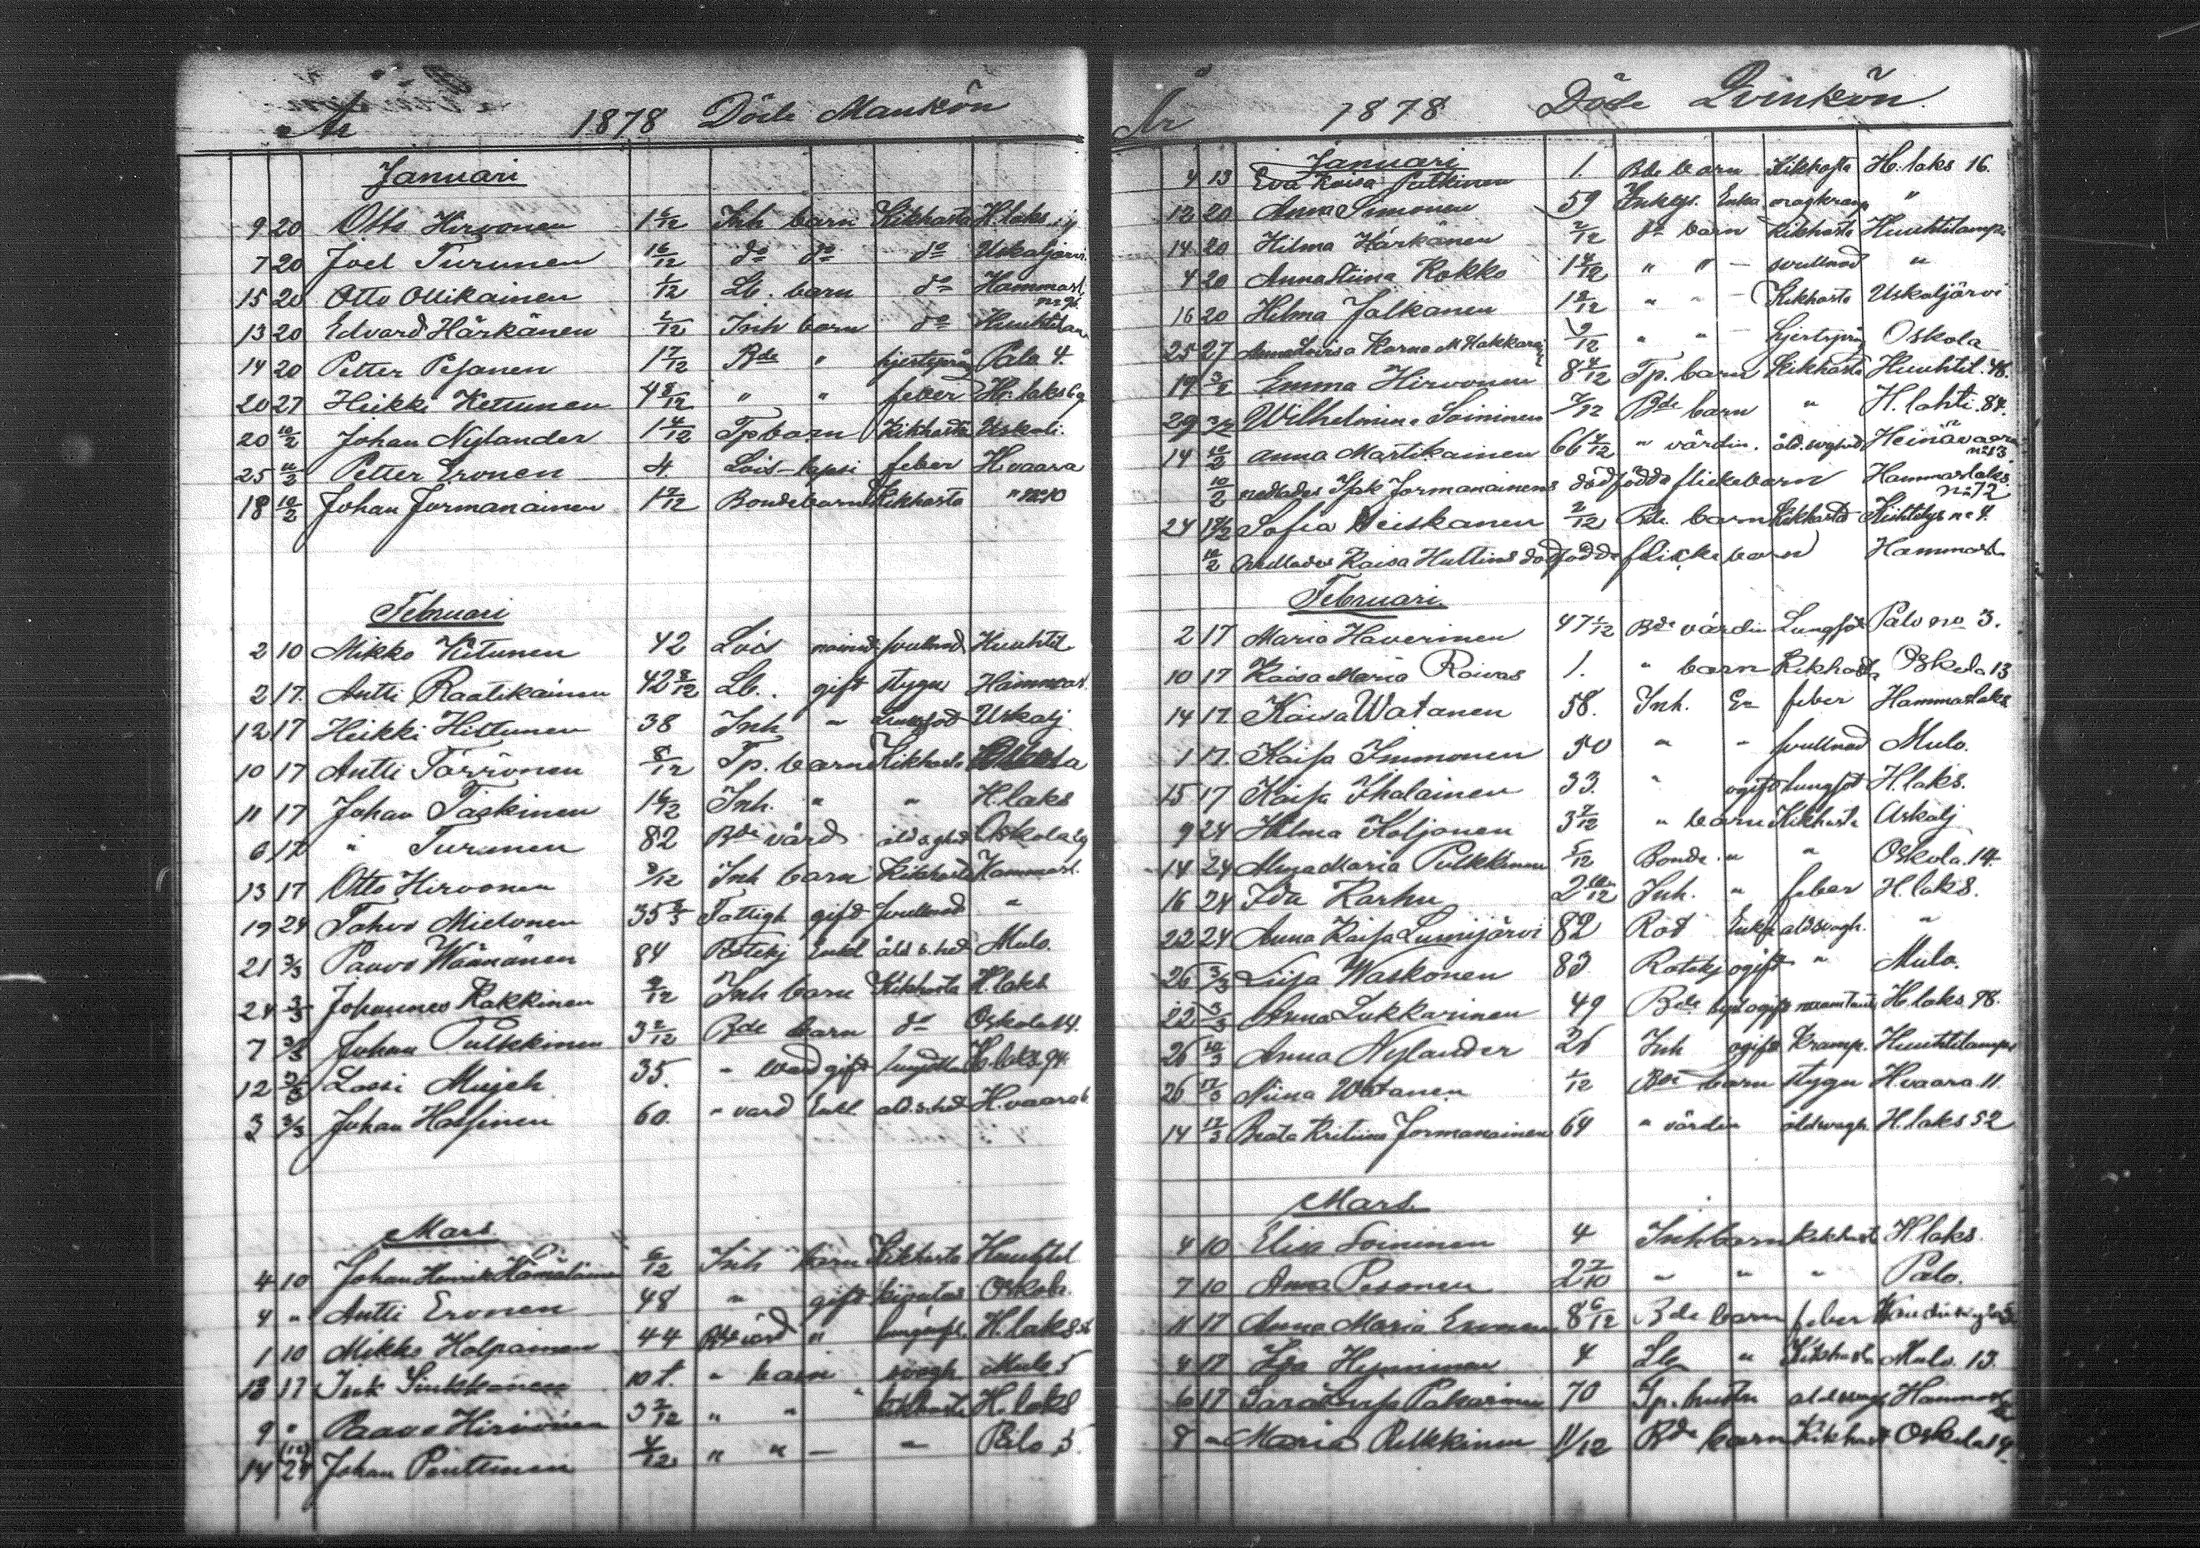 År 1878 Döde Mankön
Januari
9 20 Otto Hirvonen 1 6/12 Inh barn Kikhosta H.laks
7 20 Joel Turunen 1 6/12 do do do Uskaljärvi
15 20 Otto Ollikainen 1/12 Lb. barn do Hammasl.
13 20 Edvard Härkänen 2/12 Inh barn do
14 20 Petter Pesanen 1 7/12 Bde " Palo 4.
20 27 Heikki Kettunen 4 8/12 " " feber H.laks
20 10/2 Johan Nylander 1 4/12 Tp barn Kikhosta Uskali.
25 10/2 Petter Eronen 4 Lois-lapsi feber H.vaara
18 10/2 Johan Jormanainen 1 7/12 Bondebarn Kikhosta " no 10
Februari
2 10 Mikko Kitunen 42 Lois svullnad Huuhtil
2 17. Antti Raatikainen 42 8/12 Lb. gift stygn Hammasl.
12 17 Heikki Hittunen 38 Inh " Uskalj
10 17 Antti Törrönen 8/12 Tp. barn Kikhosta
11 17 Johan Taskinen 1 6/12 Inh. " " H.laks
6 17 " Turunen 82 Bde värd Oskola
13 17 Otto Hirvonen 3/12 Inh barn Kikhosta Hammasl.
19 24 Tahvo Mielonen 35 Fattigh gift svullnad "
21 3/3 Paavo Wäänänen 84 Enkl Mulo.
24 3/3 Johannes Kakkinen 9/12 Inh barn Kikhosta H.laks
7 3/3 Johan Pulkkinen 3 2/12 Bde barn do Oskola 14.
12 3/3 Lassi Mujeh 35. " gift H.laks 94.
3 3/3 Johan Halsinen 60. " värd Enkl H.vaara
Mars
4 10 Johan Henrik Hämäläinen 6/12 Inh barn Kikhosta Huuhtil
4 " Antti Eronen 48 " gift Oskola.
1 10 Mikko Holpainen 44 Bde värd " H.laks
13 17 Isak Sinkkonen 10 t. " barn svagh Mulo 5
9 " Paavo Hirvonen 3 2/12 " " kikhosta H.laks
14 24 Johan Penttinen 4/12 " " — " Palo 5.
År 1878 Döde Qvinkön
Januari
4 13 Eva Kaisa Pulkinen 1. Bde barn Kikhosta H.laks 16.
12 20 Anna Simonen 59 Enka "
14 20 Hilma Härkänen 2/12 do barn Kikhosta Huuhtilampi
4 20 Anna Stiina Kokko 1 4/12 " " — svullnad "
16 20 Hilma Jalkanen 1 2/12 " " — Kikhosta Uskaljärvi
25 27 Anna Lovisa Karna 9/12 " " Oskola
19 3/2 Emma Hirvonen 8 4/12 Tp. barn Kikhosta Huuhtil. 48.
29 3/2 Wilhelmina Soininen 7/12 Bde barn " H.lahti. 84.
14 10/2 Anna Martikainen 66 4/12 " värdin. Heinävaara no 13
10/2 Isak Jormanainens dödfödda flickebarn Hammaslaks. no 72
24 10/2 Sofia Heiskanen 2/12 Bde. barn Kikhosta Kiihtelys no 4.
10/2 Kaisa Huttins dödfödda flickebarn Hammasl.
Februari.
2 17 Maria Haverinen 47 Bde värdin Lungsot Palo no 3.
10 17 Kaisa Maria Raivas 1. " barn Kikhosta Oskola 13
14 17. Kaisa Watanen 58. Inh. En feber Hammaslaks
1 17. Kaisa Immonen 50 " " svullnad Mulo.
15 17 Kaisa Ihalainen 33. " ogift lungsot H.laks.
9 24 Hilma Koljonen 3 7/12 " barn Kikhosta Uskalj
14 24 Maria Pulkkinen 5/12 Bonde. " " Oskola. 14
16 24 Ida Karhu 2 Inh. " feber H.laks.
22 24 Anna Kaisa Lumijärvi 82 Rot Enka aldsvagh. "
26 3/3 Liisa Waskonen 83 ogift " Mulo.
22 3/3 Anna Lukkarinen 49 Bde ogift H.laks. 98.
26 10/3 Anna Nylander 26 Inh ogift Kramp. Huuhtilampi
26 17/3 Niina Watanen 1/12 Bde barn stygn H.vaara. 11.
14 17/3 Beata Kristiina Jormanainen 64 " värdin åldsvagh. H.laks 52
Mars
4 10 Elisa Soininen 4 Inh barn kikhost H.laks.
7 10 Anna Pesonen 2 7/10 " " " Palo.
11 17 Anna Maria Eronen 8 6/12 Bde barn feber
4 17 Hynninen 4 Lb " Kikhosta Mulo. 13.
6 17 Sara Pakarinen 70 Tp. hustru aldsvagh Hammasl
8 " Maria Pulkkinen 11/12 Bde barn Kikhost Oskola 14